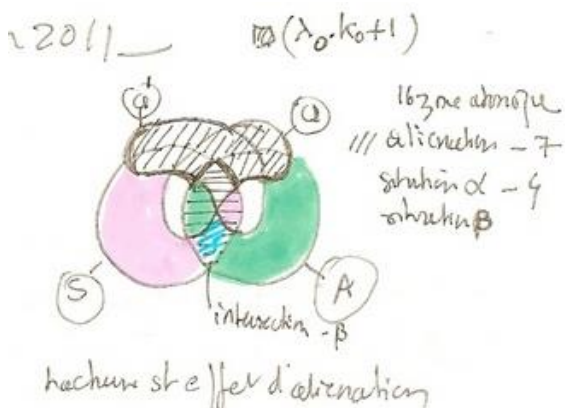 2011
(λ₀.k₀+1)
a
a
16 zone
/// aliénation - 7
situation α - 4
situation β
S
A
intersection - β
hachures st effet d'aliénation